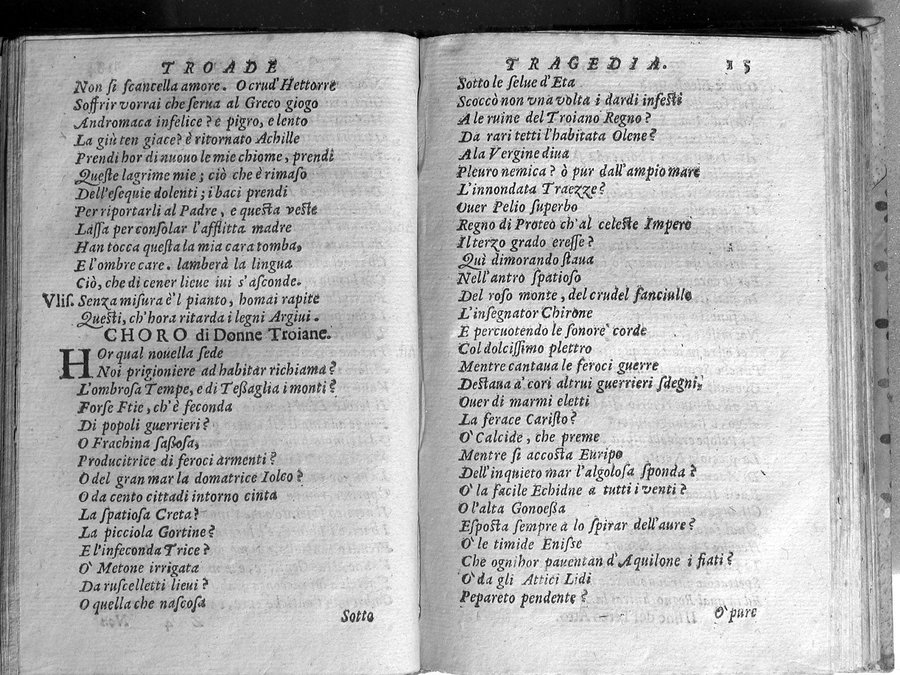 TROADE
Non si scancella amore. O crud' Hettorre
Soffrir vorrai che serua al Greco giogo
Andromaca infelice? e pigro, e lento
La giù ten giace? è ritornato Achille
Prendi hor di nuouo le mie chiome, prendi
Queste lagrime mie; ciò che è rimaso
Dell'esequie dolenti; i baci prendi
Per riportarli al Padre, e questa veste
Lassa per consolar l'afflitta madre
Han tocca questa la mia cara tomba,
E l'ombre care. lamberà la lingua
Ciò, che di cener lieue iui s'asconde.
Vlis. Senza misura è'l pianto, homai rapite
Questi, ch'hora ritarda i legni Argiui.
CHORO di Donne Troiane.
HOr qual nouella sede
Noi prigioniere ad habitar richiama?
L'ombrosa Tempe, e di Tessaglia i monti?
Forse Ftie, ch'è feconda
Di popoli guerrieri?
O Frachina sassosa,
Producitrice di feroci armenti?
O del gran mar la domatrice Iolco?
O da cento cittadi intorno cinta
La spatiosa Creta?
La picciola Gortine?
E l'infeconda Trice?
O' Metone irrigata
Da ruscelletti lieui?
O quella che nascosa
Sotto
TRAGEDIA. 15
Sotto le selue d'Eta
Scoccò non vna volta i dardi infesti
A le ruine del Troiano Regno?
Da rari tetti l'habitata Olene?
A la Vergine diua
Pleuro nemica? ò pur dall'ampio mare
L'innondata Traezze?
Ouer Pelio superbo
Regno di Proteo ch'al celeste Impero
Il terzo grado eresse?
Quì dimorando staua
Nell'antro spatioso
Del roso monte, del crudel fanciullo
L'insegnator Chirone
E percuotendo le sonore corde
Col dolcissimo plettro
Mentre cantaua le feroci guerre
Destaua à cori altrui guerrieri sdegni,
Ouer di marmi eletti
La ferace Caristo?
O' Calcide, che preme
Mentre si accosta Euripo
Dell'inquieto mar l'algolosa sponda?
O' la facile Echidne a tutti i venti?
O l'alta Gonoessa
Esposta sempre à lo spirar dell'aure?
O' le timide Enisse
Che ognihor pauentan d'Aquilone i fiati?
O' da gli Attici Lidi
Pepareto pendente?
O' pure